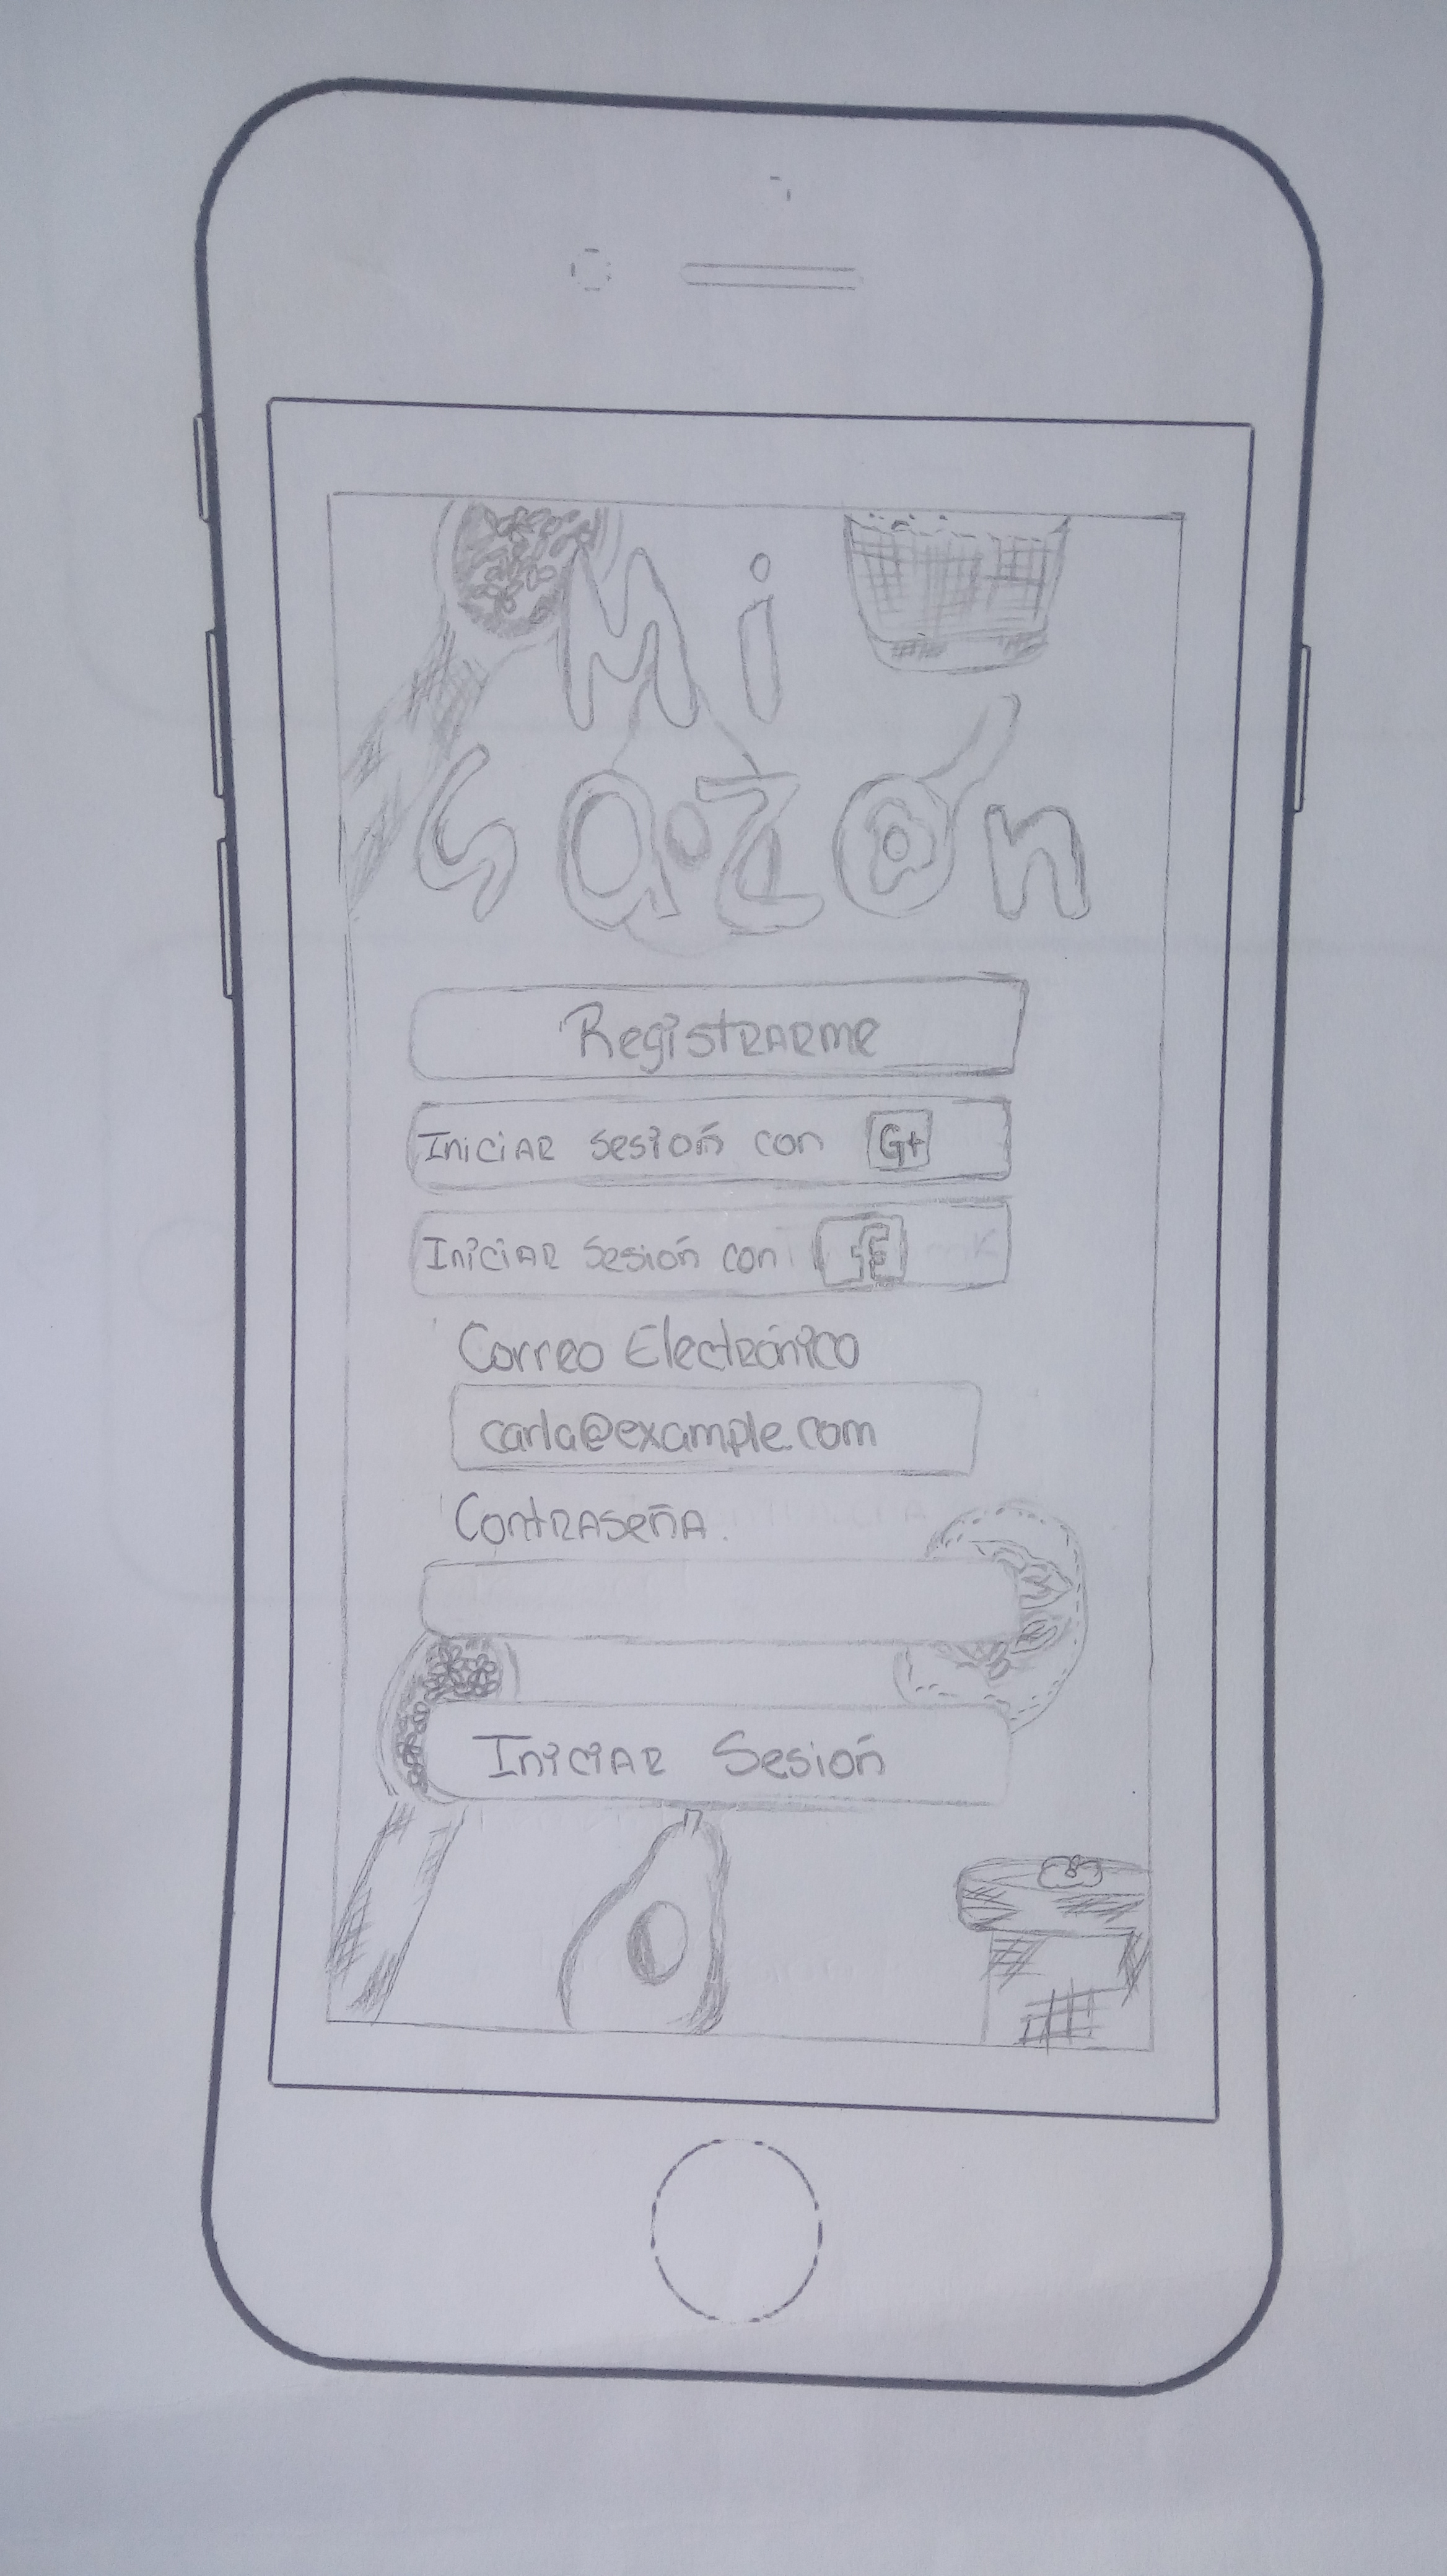 Mi
Sazón
Registrarme
Iniciar sesión con G+
Iniciar Sesión con f
Correo Electrónico
carla@example.com
Contraseña
Iniciar Sesión